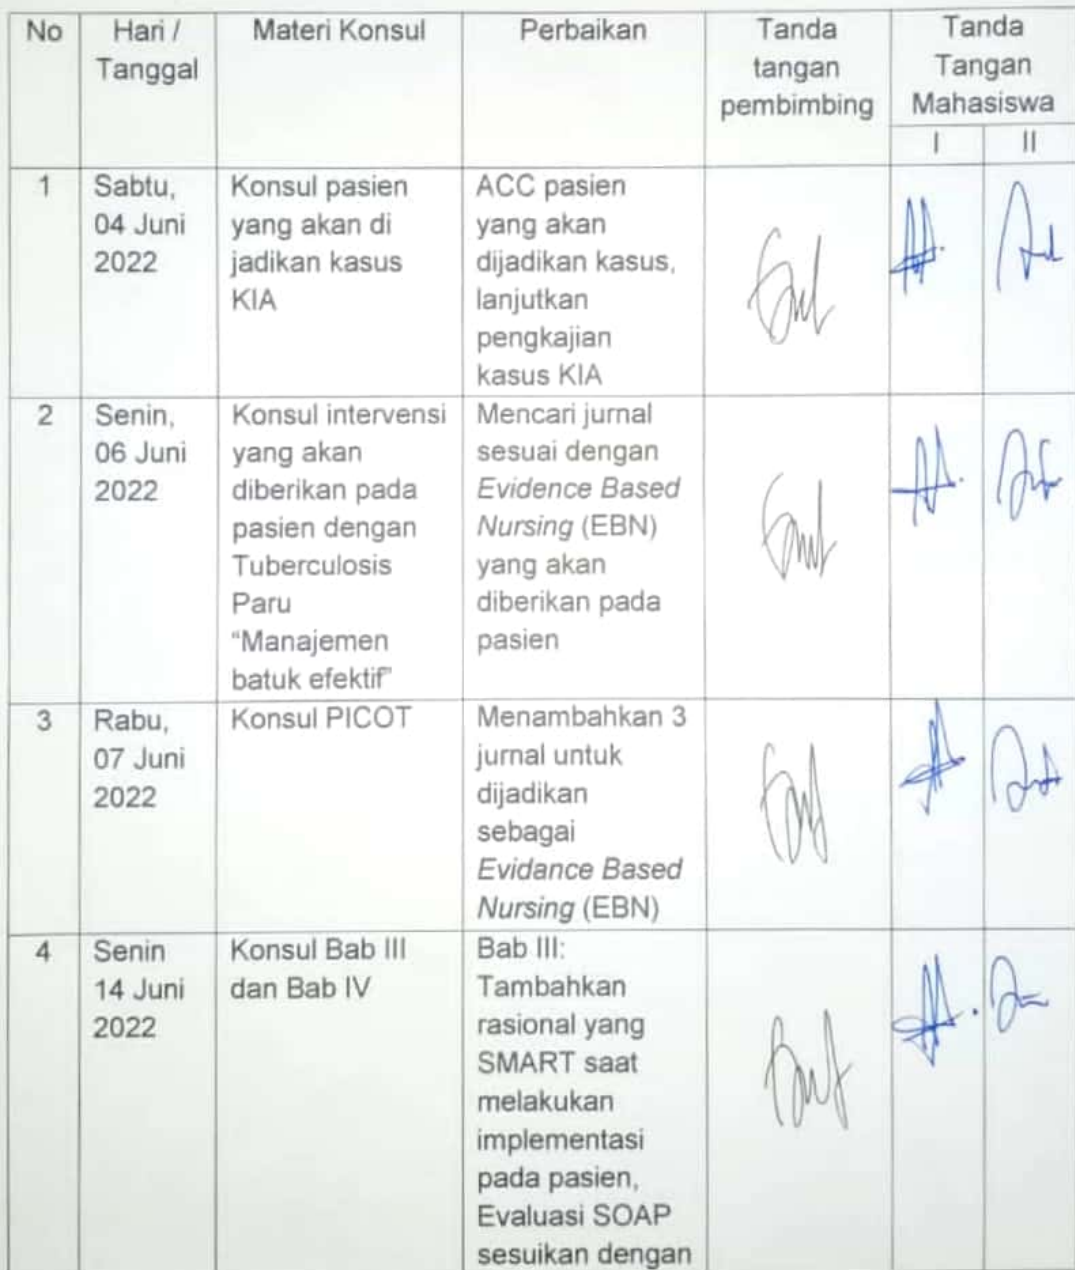 No
Hari /
Tanggal
Materi Konsul
Perbaikan
Tanda
tangan
pembimbing
Tanda
Tangan
Mahasiswa
I
II
1
Sabtu,
04 Juni
2022
Konsul pasien
yang akan di
jadikan kasus
KIA
ACC pasien
yang akan
dijadikan kasus,
lanjutkan
pengkajian
kasus KIA
2
Senin,
06 Juni
2022
Konsul intervensi
yang akan
diberikan pada
pasien dengan
Tuberculosis
Paru
“Manajemen
batuk efektif”
Mencari jurnal
sesuai dengan
Evidence Based
Nursing (EBN)
yang akan
diberikan pada
pasien
3
Rabu,
07 Juni
2022
Konsul PICOT
Menambahkan 3
jurnal untuk
dijadikan
sebagai
Evidance Based
Nursing (EBN)
4
Senin
14 Juni
2022
Konsul Bab III
dan Bab IV
Bab III:
Tambahkan
rasional yang
SMART saat
melakukan
implementasi
pada pasien,
Evaluasi SOAP
sesuikan dengan